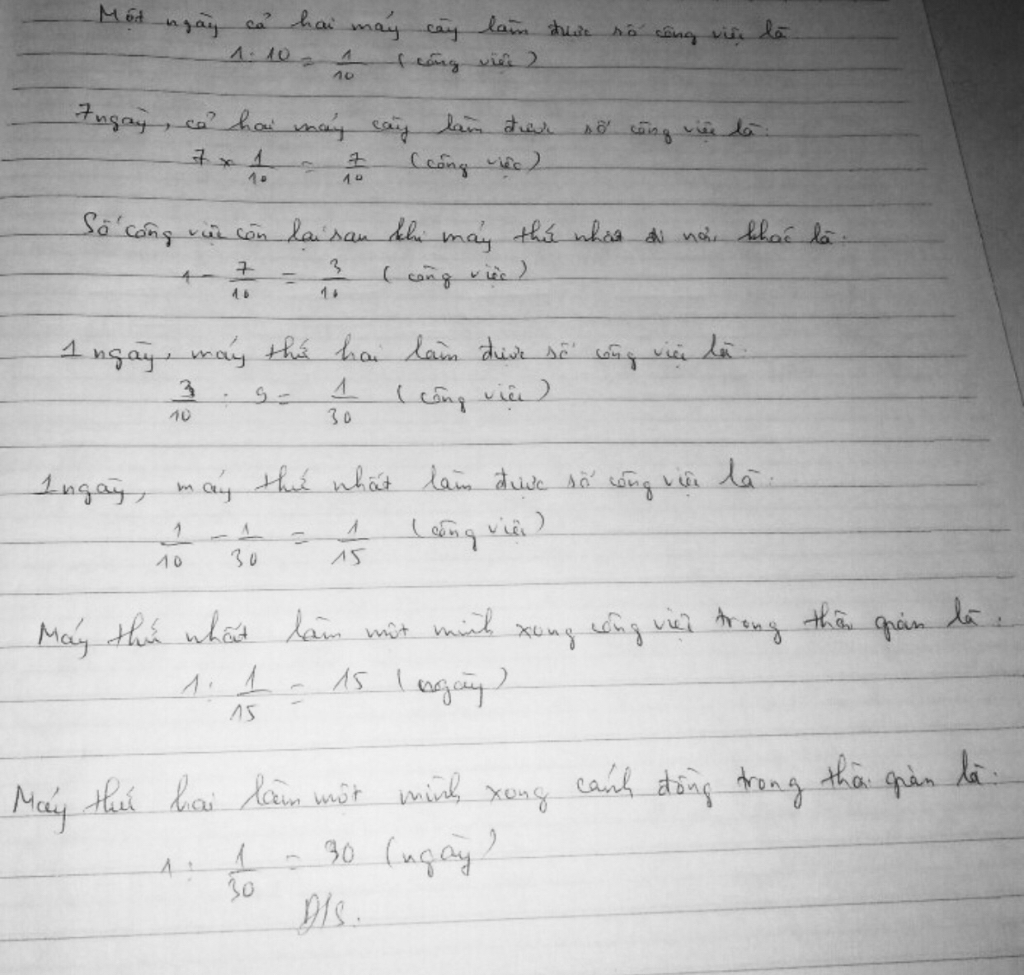 Một ngày cả hai máy cày làm được số công việc là
1 : 10 = 1/10 (công việc)
7 ngày, cả hai máy cày làm được số công việc là:
7 × 1/10 = 7/10 (công việc)
Số công việc còn lại sau khi máy thứ nhất đi nơi khác là:
1 - 7/10 = 3/10 (công việc)
1 ngày, máy thứ hai làm được số công việc là:
3/10 : 9 = 1/30 (công việc)
1 ngày, máy thứ nhất làm được số công việc là:
1/10 - 1/30 = 1/15 (công việc)
Máy thứ nhất làm một mình xong công việc trong thời gian là:
1 : 1/15 = 15 (ngày)
Máy thứ hai làm một mình xong cánh đồng trong thời gian là:
1 : 1/30 = 30 (ngày)
Đ/S.